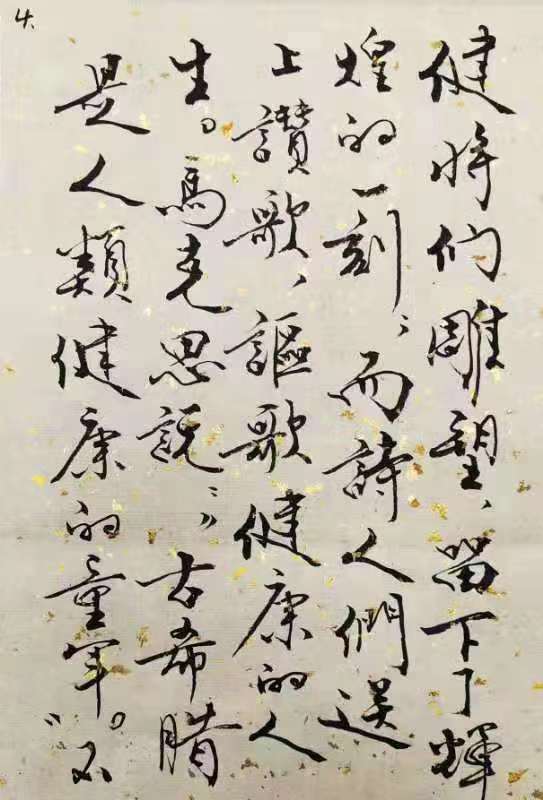 4.
健将们雕塑、留下了輝
煌的一刻，而詩人們送
上讚歌、謳歌健康的人
生。馬克思説：“古希腊
是人類健康的童年。”不